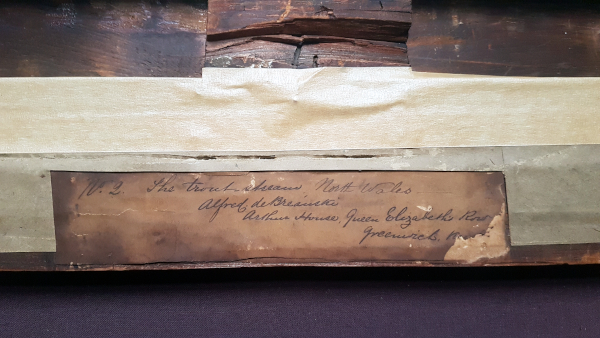 No. 2. The trout stream, North Wales
Alfred de Breanski
Arthur House, Queen Elizabeths Row
Greenwich. Kent